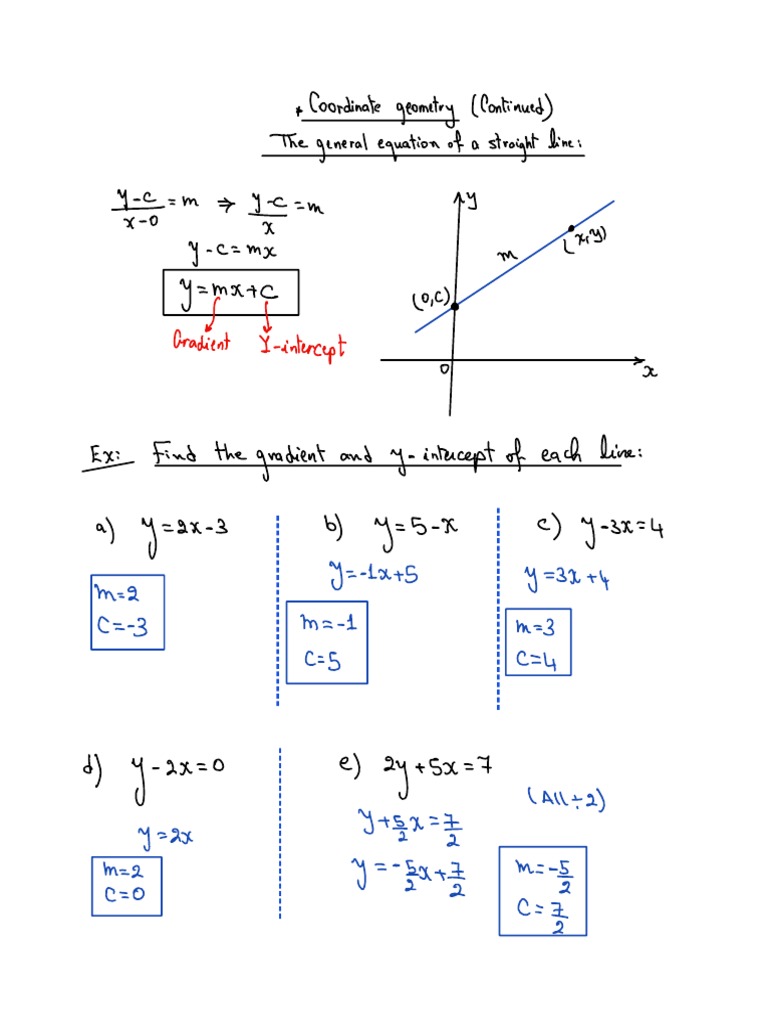 * Coordinate geometry (Continued)
The general equation of a straight line:
y-c/x-0 = m ⇒ y-c/x = m
y-c=mx
y=mx+c
Gradient Y-intercept
y
m
(x,y)
(0,c)
0
x
Ex: Find the gradient and y-intercept of each line:
a) y=2x-3
m=2
C=-3
b) y=5-x
y=-1x+5
m=-1
C=5
c) y-3x=4
y=3x+4
m=3
C=4
d) y-2x=0
y=2x
m=2
C=0
e) 2y+5x=7
(All÷2)
y+5/2x=7/2
y=-5/2x+7/2
m=-5/2
C=7/2